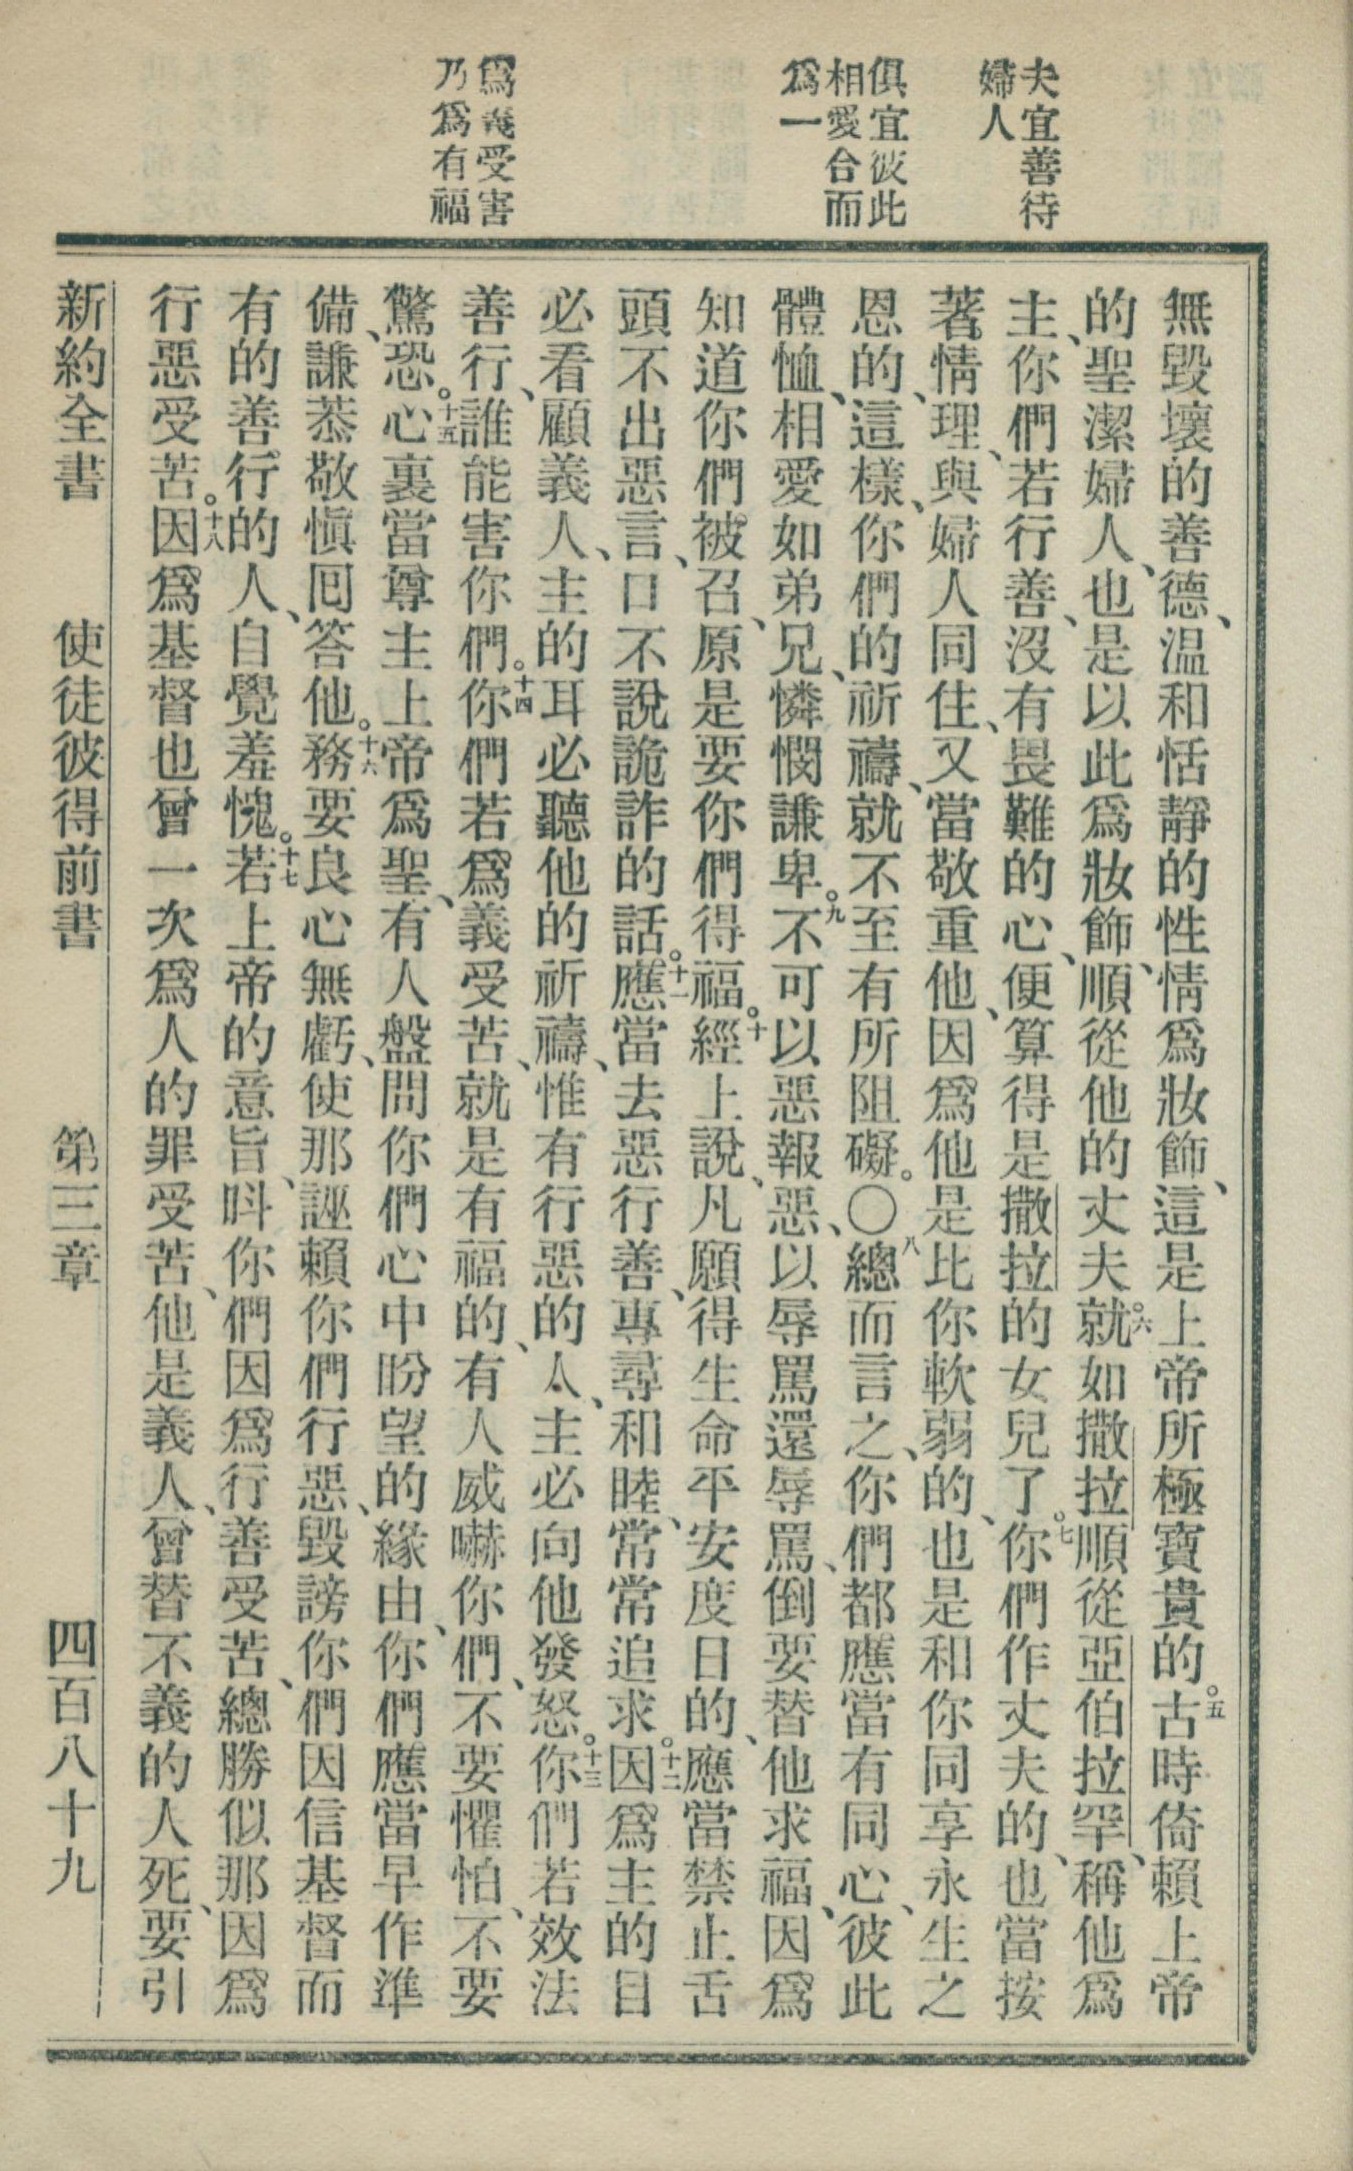 夫宜善待
婦人
俱宜彼此
相愛合而
爲一
爲義受害
乃爲有福
無毀壞的善德、温和恬靜的性情爲妝飾、這是上帝所極寶貴的。五古時倚賴上帝
的聖潔婦人、也是以此爲妝飾、順從他的丈夫。六就如撒拉順從亞伯拉罕、稱他爲
主、你們若行善、沒有畏難的心、便算得是撒拉的女兒了。七你們作丈夫的、也當按
著情理、與婦人同住、又當敬重他、因爲他是比你軟弱的、也是和你同享永生之
恩的、這樣、你們的祈禱、就不至有所阻礙。〇八總而言之、你們都應當有同心、彼此
體恤、相愛如弟兄、憐憫謙卑。九不可以惡報惡、以辱罵還辱罵、倒要替他求福、因爲
知道你們被召、原是要你們得福。十經上說、凡願得生命平安度日的、應當禁止舌
頭不出惡言、口不說詭詐的話。十一應當去惡行善、專尋和睦、常常追求。十二因爲主的目
必看顧義人、主的耳必聽他的祈禱、惟有行惡的人、主必向他發怒。十三你們若效法
善行、誰能害你們。十四你們若爲義受苦、就是有福的、有人威嚇你們、不要懼怕、不要
驚恐。十五心裏當尊主上帝爲聖、有人盤問你們心中盼望的緣由、你們應當早作準
備、謙恭敬愼回答他。十六務要良心無虧、使那誣賴你們行惡、毀謗你們因信基督而
有的善行的人、自覺羞愧。十七若上帝的意旨、呌你們因爲行善受苦、總勝似那因爲
行惡受苦。十八因爲基督也曾一次爲人的罪受苦、他是義人、曾替不義的人死、要引
新約全書　使徒彼得前書　第三章　四百八十九